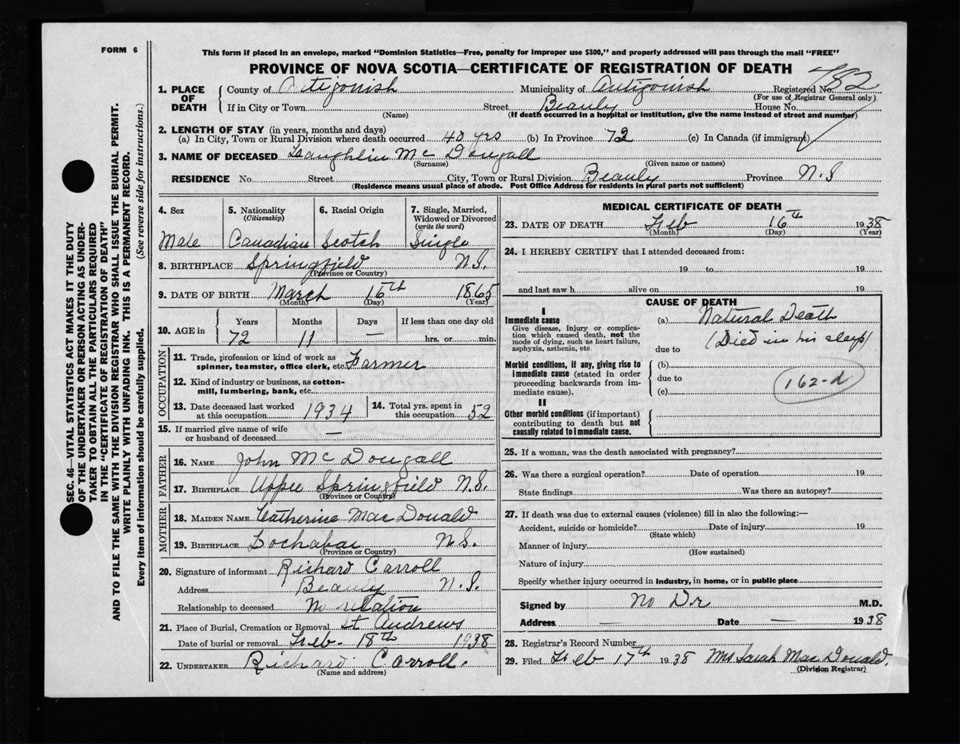 FORM 6
This form if placed in an envelope, marked "Dominion Statistics—Free, penalty for improper use $300," and properly addressed will pass through the mail "FREE"
PROVINCE OF NOVA SCOTIA—CERTIFICATE OF REGISTRATION OF DEATH
1. PLACE OF DEATH
County of Antigonish Municipality of Antigonish Registered No. 782
(For use of Registrar General only)
If in City or Town Street Beauly House No.
(Name) (If death occurred in a hospital or institution, give the name instead of street and number)
2. LENGTH OF STAY (in years, months and days)
(a) In City, Town or Rural Division where death occurred 40 yrs (b) In Province 72 (c) In Canada (if immigrant)
3. NAME OF DECEASED Laughlin Mc Dougall
(Surname) (Given name or names)
RESIDENCE No. Street City, Town or Rural Division Beauly Province N.S
(Residence means usual place of abode. Post Office Address for residents in rural parts not sufficient)
4. Sex
Male
5. Nationality
(Citizenship)
Canadian
6. Racial Origin
Scotch
7. Single, Married, Widowed or Divorced
(write the word)
Single
8. BIRTHPLACE Springfield N.S.
(Province or Country)
9. DATE OF BIRTH March 16th 1865
(Month) (Day) (Year)
10. AGE in Years Months Days If less than one day old
72 11 — hrs. or min.
OCCUPATION
11. Trade, profession or kind of work as spinner, teamster, office clerk, etc. Farmer
12. Kind of industry or business, as cotton-mill, lumbering, bank, etc.
13. Date deceased last worked at this occupation 1934
14. Total yrs. spent in this occupation 52
15. If married give name of wife or husband of deceased —
FATHER
16. NAME John Mc Dougall
17. BIRTHPLACE Upper Springfield N.S.
(Province or Country)
MOTHER
18. MAIDEN NAME Catherine Mac Donald
19. BIRTHPLACE Lochabar N.S.
(Province or Country)
20. Signature of informant Richard Carroll
Address Beauly N.S.
Relationship to deceased no relation
21. Place of Burial, Cremation or Removal St Andrews
Date of burial or removal Feb 18th 1938
22. UNDERTAKER Richard Carroll.
(Name and address)
MEDICAL CERTIFICATE OF DEATH
23. DATE OF DEATH Feb 16th 1938
(Month) (Day) (Year)
24. I HEREBY CERTIFY that I attended deceased from:
19 to 19
and last saw h alive on 19
CAUSE OF DEATH
I
Immediate cause
Give disease, injury or complication which caused death, not the mode of dying, such as heart failure, asphyxia, asthenia, etc.
(a) Natural Death
(Died in his sleep)
due to
Morbid conditions, if any, giving rise to immediate cause (stated in order proceeding backwards from immediate cause).
(b)
due to
(c)
162-d
II
Other morbid conditions (if important) contributing to death but not causally related to immediate cause.
25. If a woman, was the death associated with pregnancy?
26. Was there a surgical operation? Date of operation 19
State findings Was there an autopsy?
27. If death was due to external causes (violence) fill in also the following:—
Accident, suicide or homicide? Date of injury 19
(State which)
Manner of injury
(How sustained)
Nature of injury
Specify whether injury occurred in industry, in home, or in public place
Signed by No Dr M.D.
Address — Date — 1938
28. Registrar's Record Number
29. Filed Feb 17th 1938 Mrs Sarah Mac Donald.
(Division Registrar)
SEC. 46—VITAL STATISTICS ACT MAKES IT THE DUTY
OF THE UNDERTAKER OR PERSON ACTING AS UNDER-
TAKER TO OBTAIN ALL THE PARTICULARS REQUIRED
IN THE "CERTIFICATE OF REGISTRATION OF DEATH"
AND TO FILE THE SAME WITH THE DIVISION REGISTRAR WHO SHALL ISSUE THE BURIAL PERMIT.
WRITE PLAINLY WITH UNFADING INK. THIS IS A PERMANENT RECORD.
Every item of information should be carefully supplied. (See reverse side for instructions.)